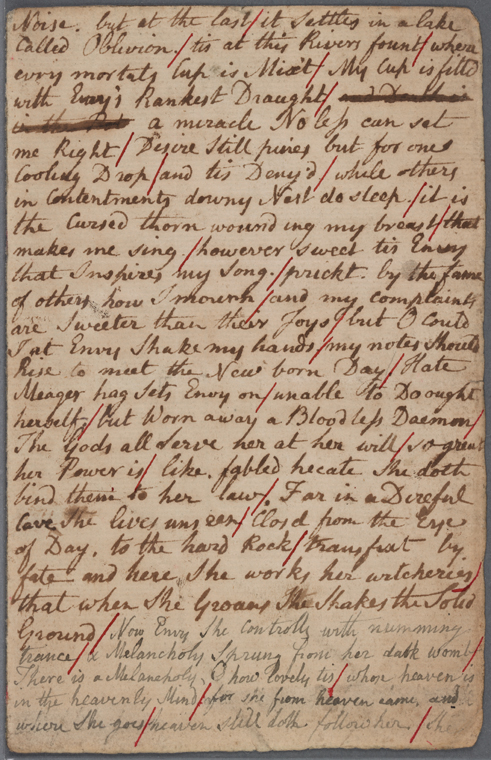 Noise. but at the last / it settles in a lake
Called Oblivion. / tis at this Rivers fount / where
evry mortals Cup is Mix't / My Cup is filld
with Envy's Rankest Draught / and Death is
in the Pot a miracle No less can set
me Right / Desire Still pines but for one
Cooling Drop / and tis Deny'd / while others
in Contentments downy Nest do sleep / it is
the Cursed thorn wounding my breast / that
makes me sing / however sweet tis Envy
that Inspires my Song. / prickt. by the fame
of others how I mourn / and my complaints
are Sweeter than their Joys / but O could
I at Envy Shake my hands / my notes Should
Rise to meet the New born Day / Hate
Meager hag Sets Envy on / unable to Do ought
herself / but Worn away a Bloodless Daemon /
The Gods all Serve her at her will / so great
her Power is / like. fabled hecate She doth
bind them to her law / . Far in a Direful
cave She lives unseen / Closd from the Eye
of Day. to the hard Rock / transfixt by
fate and here She works her witcheries /
that when She Groans She Shakes the Solid
Ground / Now Envy She controlls with numming
trance / & Melancholy Sprung from her dark womb /
There is a Melancholy, O how lovely tis / whose heaven is
in the heavenly Mind / for she from heaven came, and
where She goes / heaven still doth follow her. / She